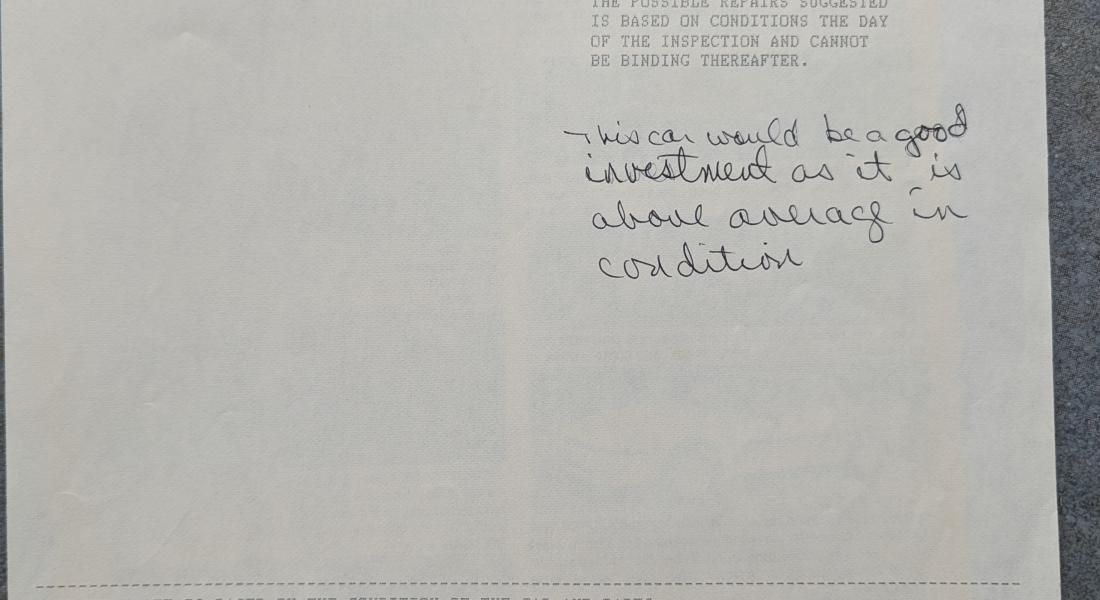 THE POSSIBLE REPAIRS SUGGESTED
IS BASED ON CONDITIONS THE DAY
OF THE INSPECTION AND CANNOT
BE BINDING THEREAFTER.
This car would be a good
investment as it is
above average in
condition